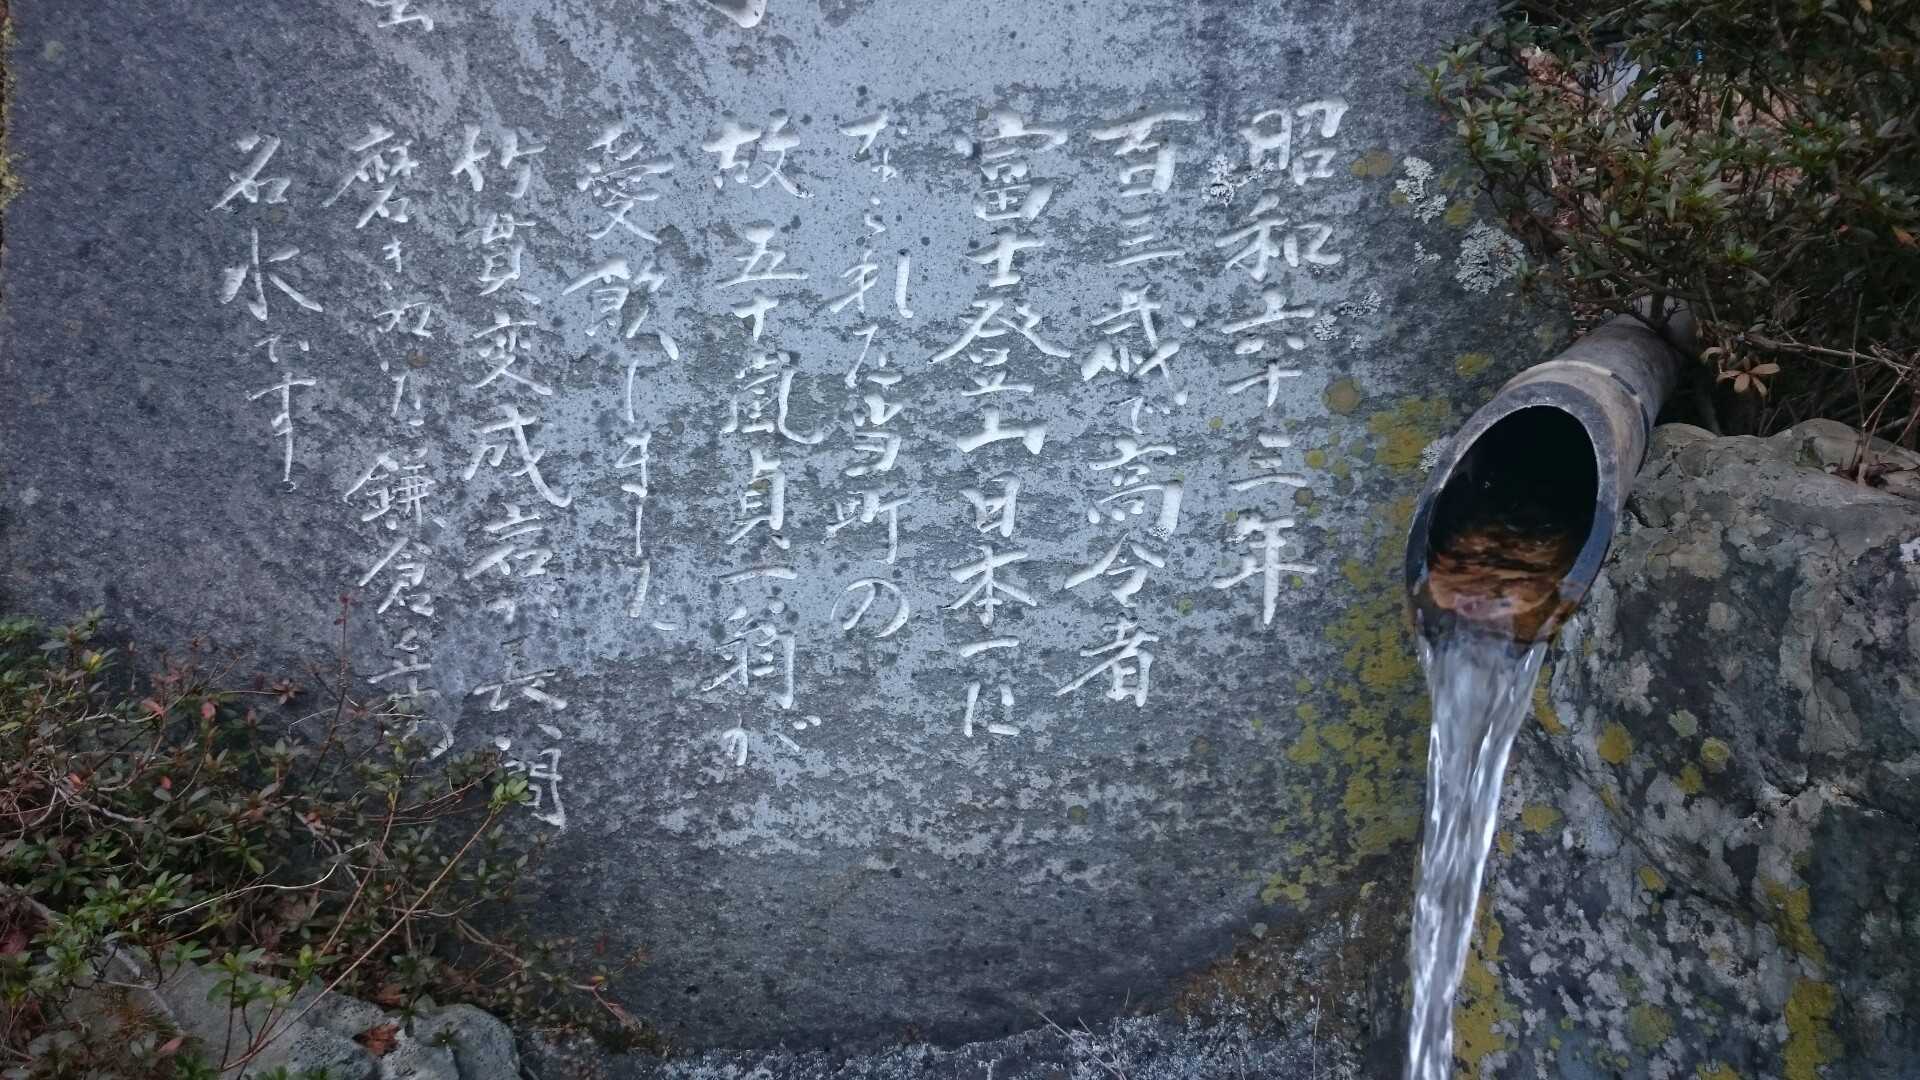 昭和六十三年
百三歳で高令者
富士登山日本一に
なられた当町の
故五十嵐貞一翁が
愛飲しました
竹貫変成岩が長い間
磨きぬいた鎌倉岳の
名水です